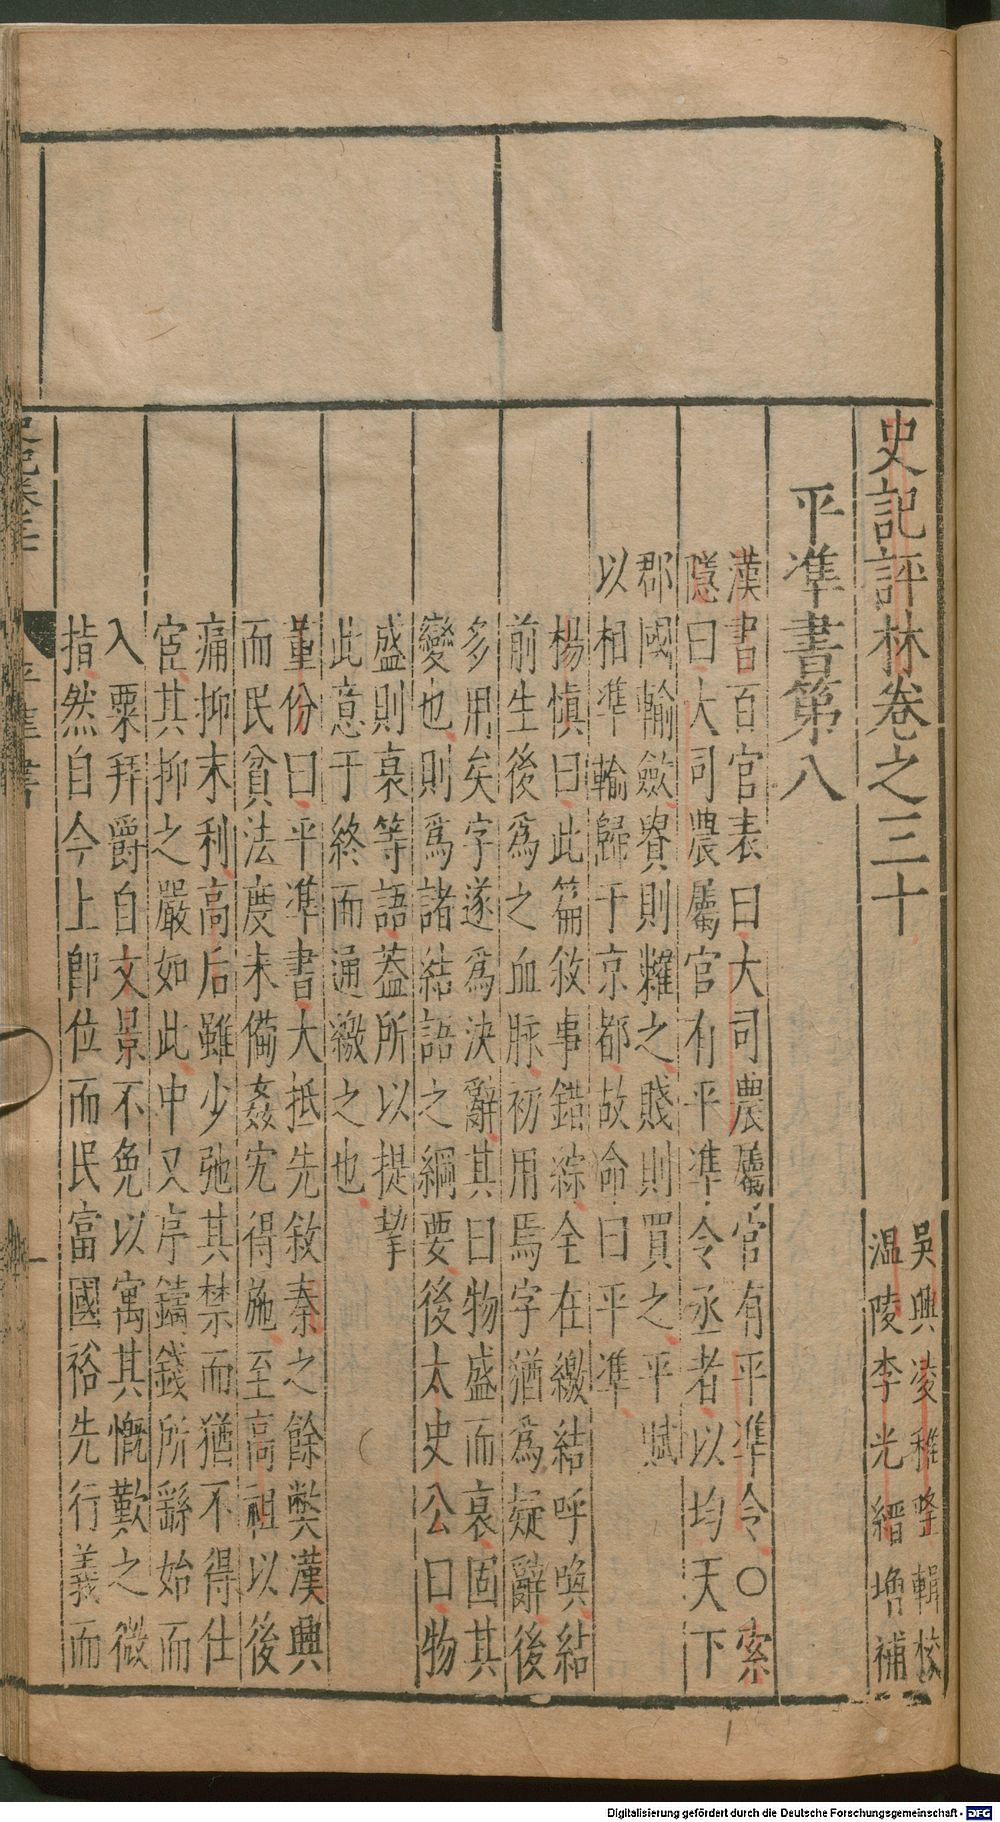 史記評林卷之三十
吳興凌稚隆輯校
溫陵李光縉增補
平準書第八
漢書百官表曰大司農屬官有平準令○索
隱曰大司農屬官有平準令丞者以均天下
郡國輸斂貴則糶之賤則買之平賦
以相準輸歸于京都故命曰平準
楊慎曰此篇敘事錯綜全在繳結呼喚結
前生後爲之血脉初用焉字猶爲疑辭後
多用矣字遂爲決辭其曰物盛而衰固其
變也則爲諸結語之綱要後太史公曰物
盛則衰等語葢所以提挈
此意于終而通繳之也
董份曰平準書大抵先敘秦之餘獘漢興
而民貧法度未備姦宄得施至高祖以後
痛抑末利高后雖少弛其禁而猶不得仕
宦其抑之嚴如此中又序鑄錢所繇始而
入粟拜爵自文景不免以寓其慨歎之微
指然自今上卽位而民富國裕先行義而
平準書
一
Digitalisierung gefördert durch die Deutsche Forschungsgemeinschaft - DFG